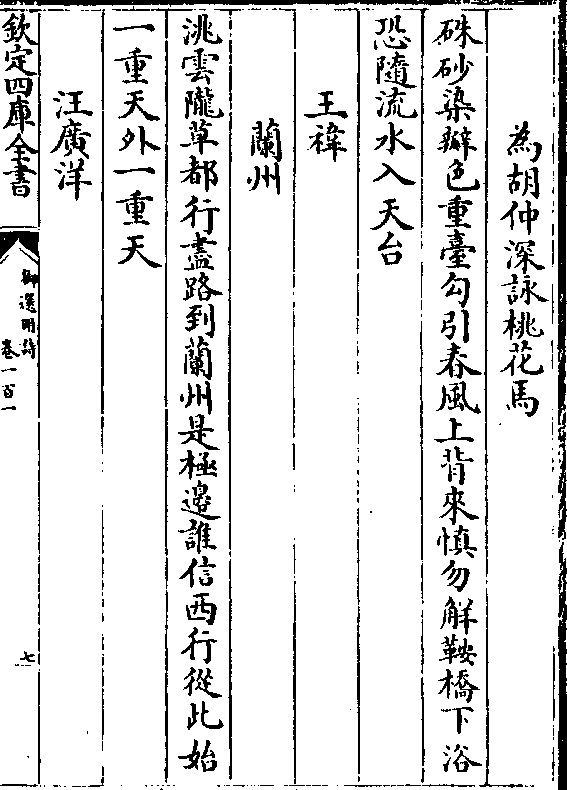 為胡仲深詠桃花馬
硃砂染瓣色重臺勾引春風上背來慎勿解鞍橋下浴
恐隨流水入天台
王褘
蘭州
洮雲隴草都行盡路到蘭州是極邊誰信西行從此始
一重天外一重天
汪廣洋
欽定四庫全書
御選明詩
卷一百一
七